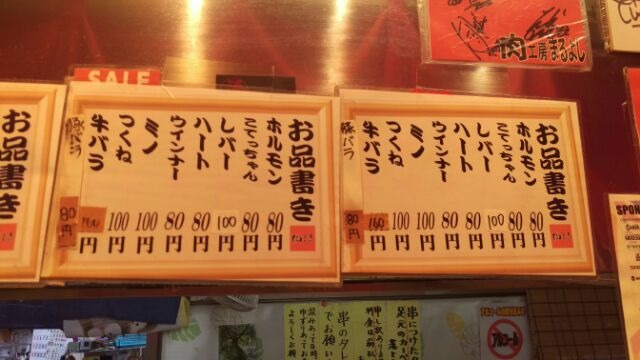 肉工房まるよし
SALE
お品書き
お品書き
ホルモン 80円
こてっちゃん 80円
レバー 100円
ハート 80円
ウインナー 80円
ミノ 100円
つくね 100円
牛バラ 160円
豚バラ 80円
お品書き
ホルモン 80円
こてっちゃん 80円
レバー 100円
ハート 80円
ウインナー 80円
ミノ 100円
つくね 100円
牛バラ 160円
豚バラ 80円
串につけた
足元のか
串のタレ
でお願い
混みあてる時
ゆずりあって
よろしくお願
アルコール